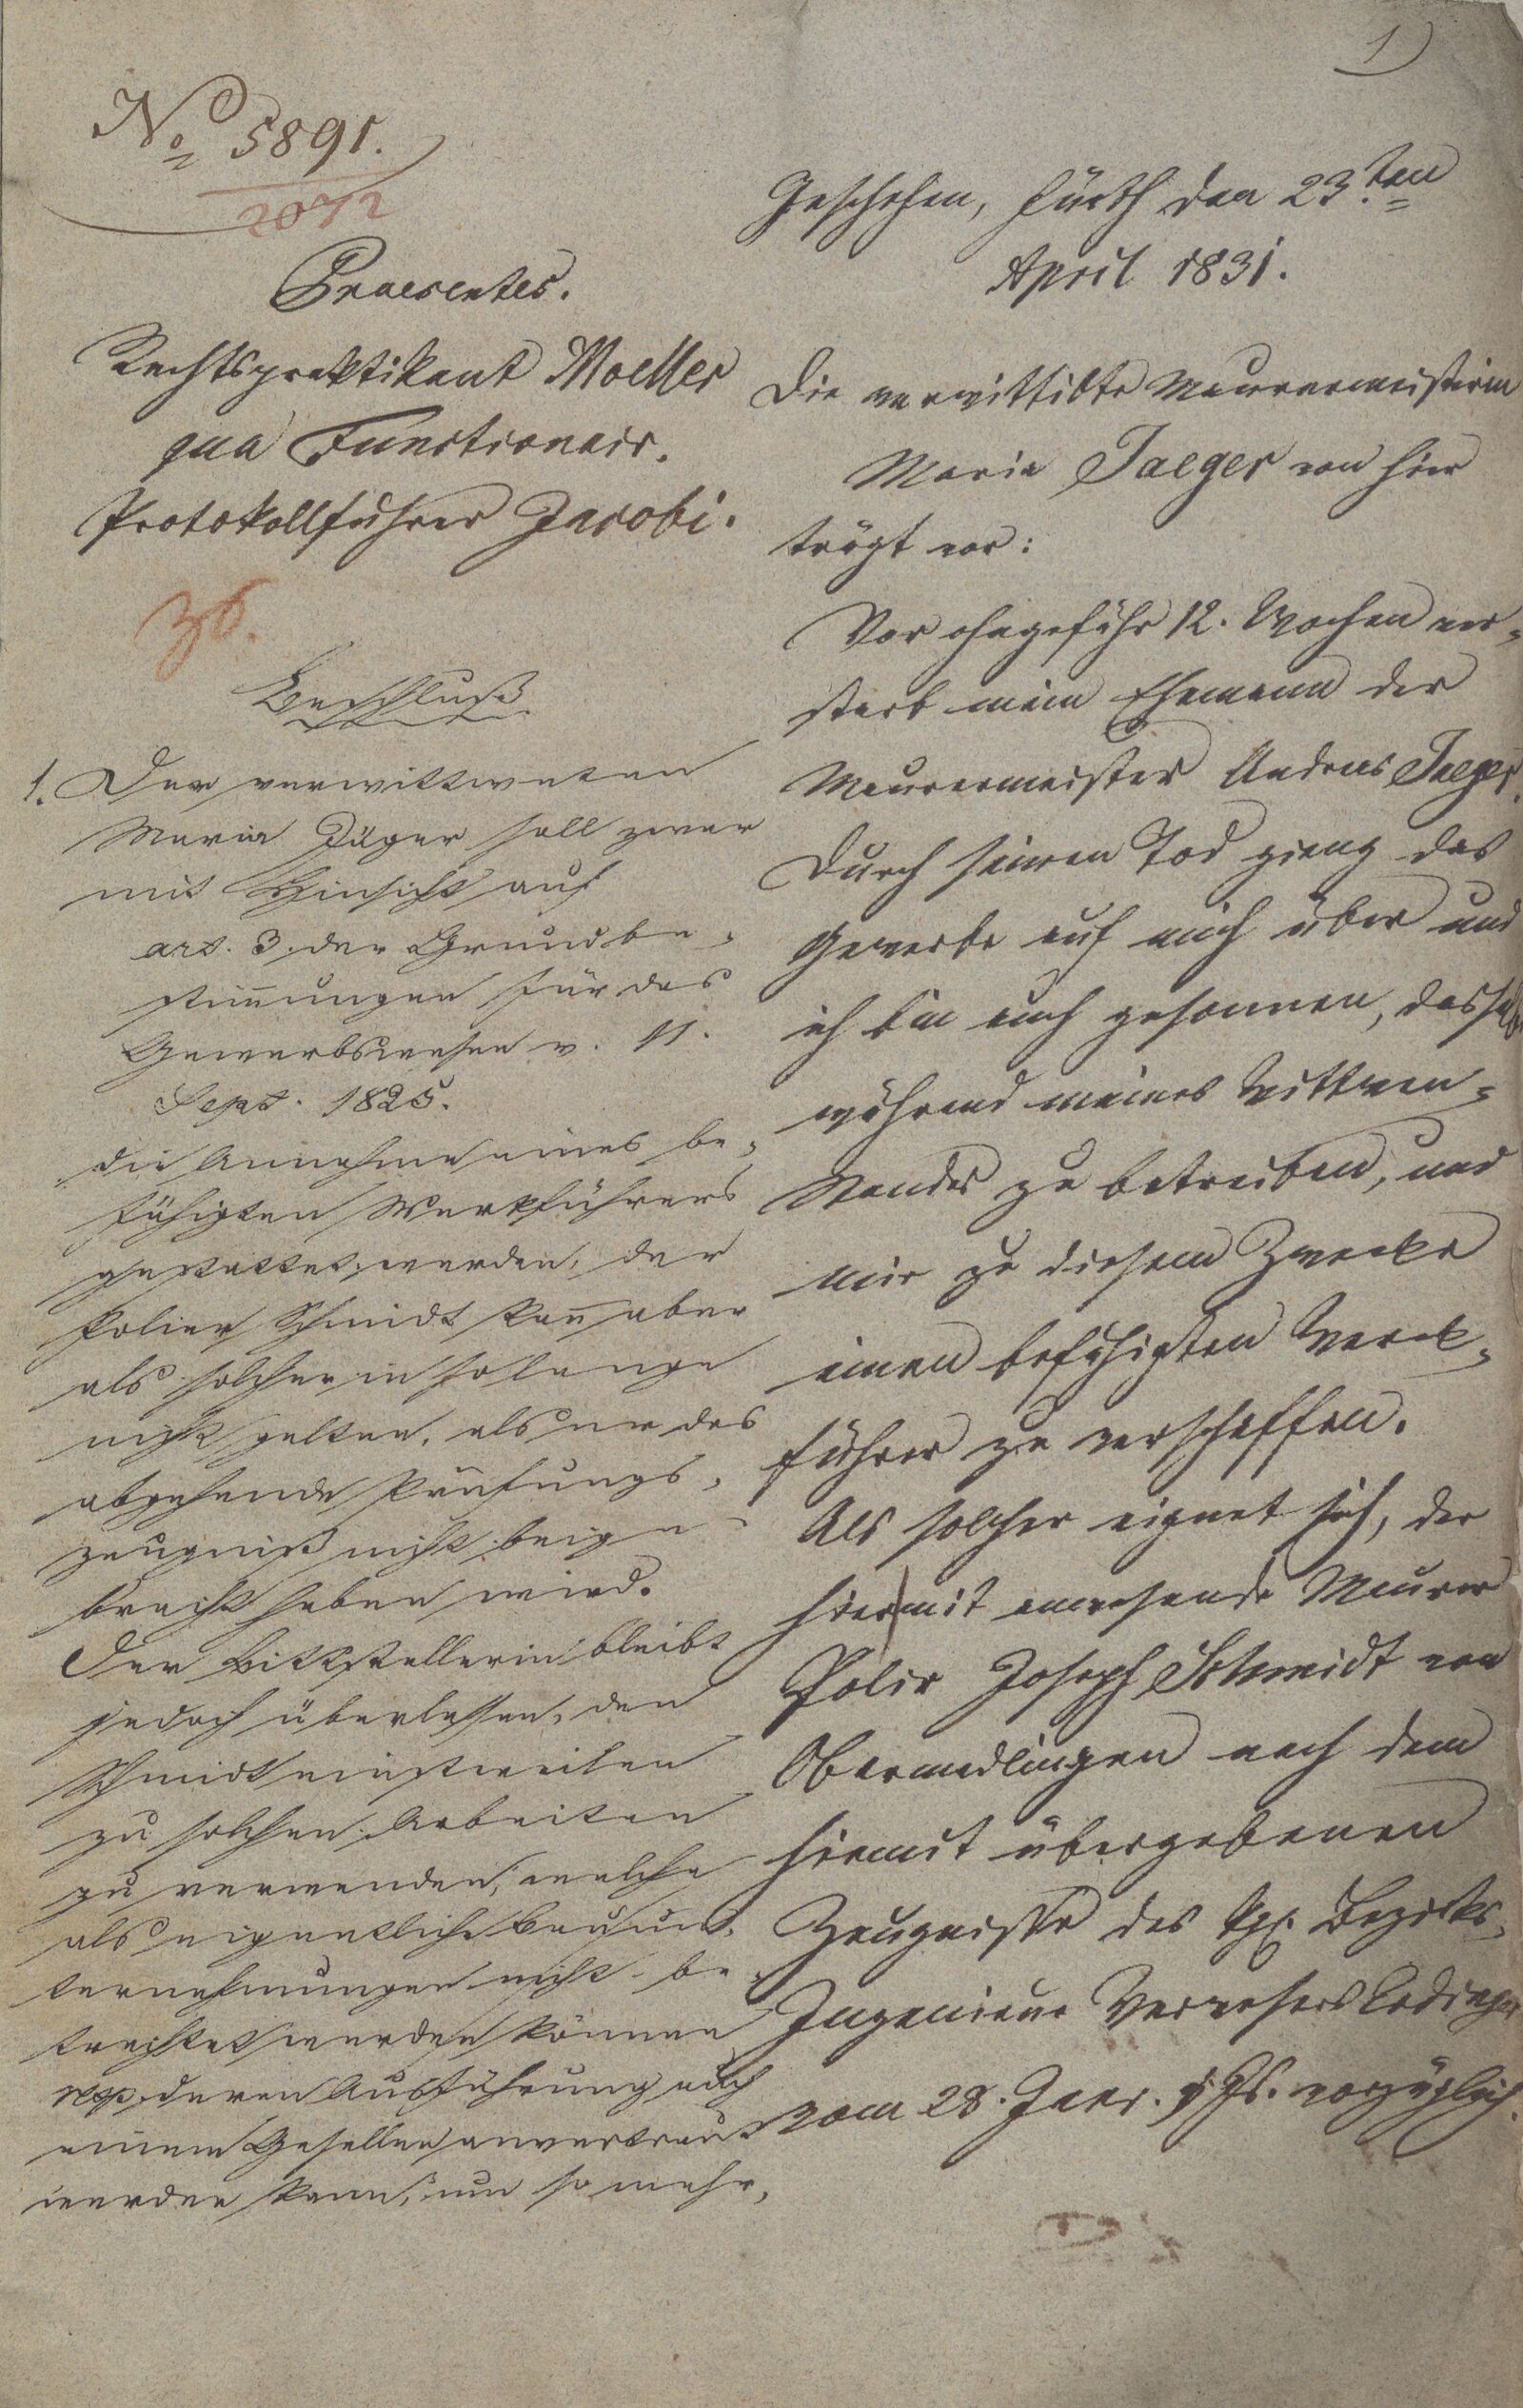 1
No 5891.
2072
Praesentes.
Rechtspraktikant Moeller
qua Functionair.
Protokollführer Jacobi.
36.
Beschluß
1. Der verwittweten
Maria Jäger soll zwar
mit Hinsicht auf
art. 3. der Grundbe-
stim̄ungen für das
Gewerbswesen v. 11.
Sept. 1825.
die Annahme eines be-
fähigten Werkführers
gestattet werden, der
Polier Schmidt kan̄ aber
als solcher in solange
nicht gelten, als er das
abgehende Prüfungs-
zeugniß nicht beige-
bracht haben wird.
Der Bittstellerin bleibt
jedoch überlassen, den
Schmidt einstweilen
zu solchen Arbeiten
zu verwenden, welche
als eigentliche Bauun-
ternehmungen nicht be-
trachtet werden können
resp. deren Ausführung auch
einem Gesellen anvertraut
werden kann, um so mehr,
Geschehen, Fürth den 23ten
April 1831.
Die verwittibte Maurermeisterin
Maria Jaeger von hier
trägt vor:
Vor ohngefähr 12. Wochen ver-
starb mein Ehemann der
Maurermeister Andreas Jaeger.
Durch seinen Tod gieng das
Gewerbe auf mich über und
ich bin auch gesonnen, dasselbe
während meines Wittwen-
standes zu betreiben, und
mir zu diesem Zwecke
einen befähigten Werck-
führer zu verschaffen.
Als solcher eignet sich, der
hiermit anwesende Maurer
Polir Joseph Schmidt von
Obermedlingen nach dem
hiemit übergebenen
Zeugnisse des kgl. Bezirks-
Ingenieur Verwesers
vom 28. Janr. d. Js. vorzüglich.